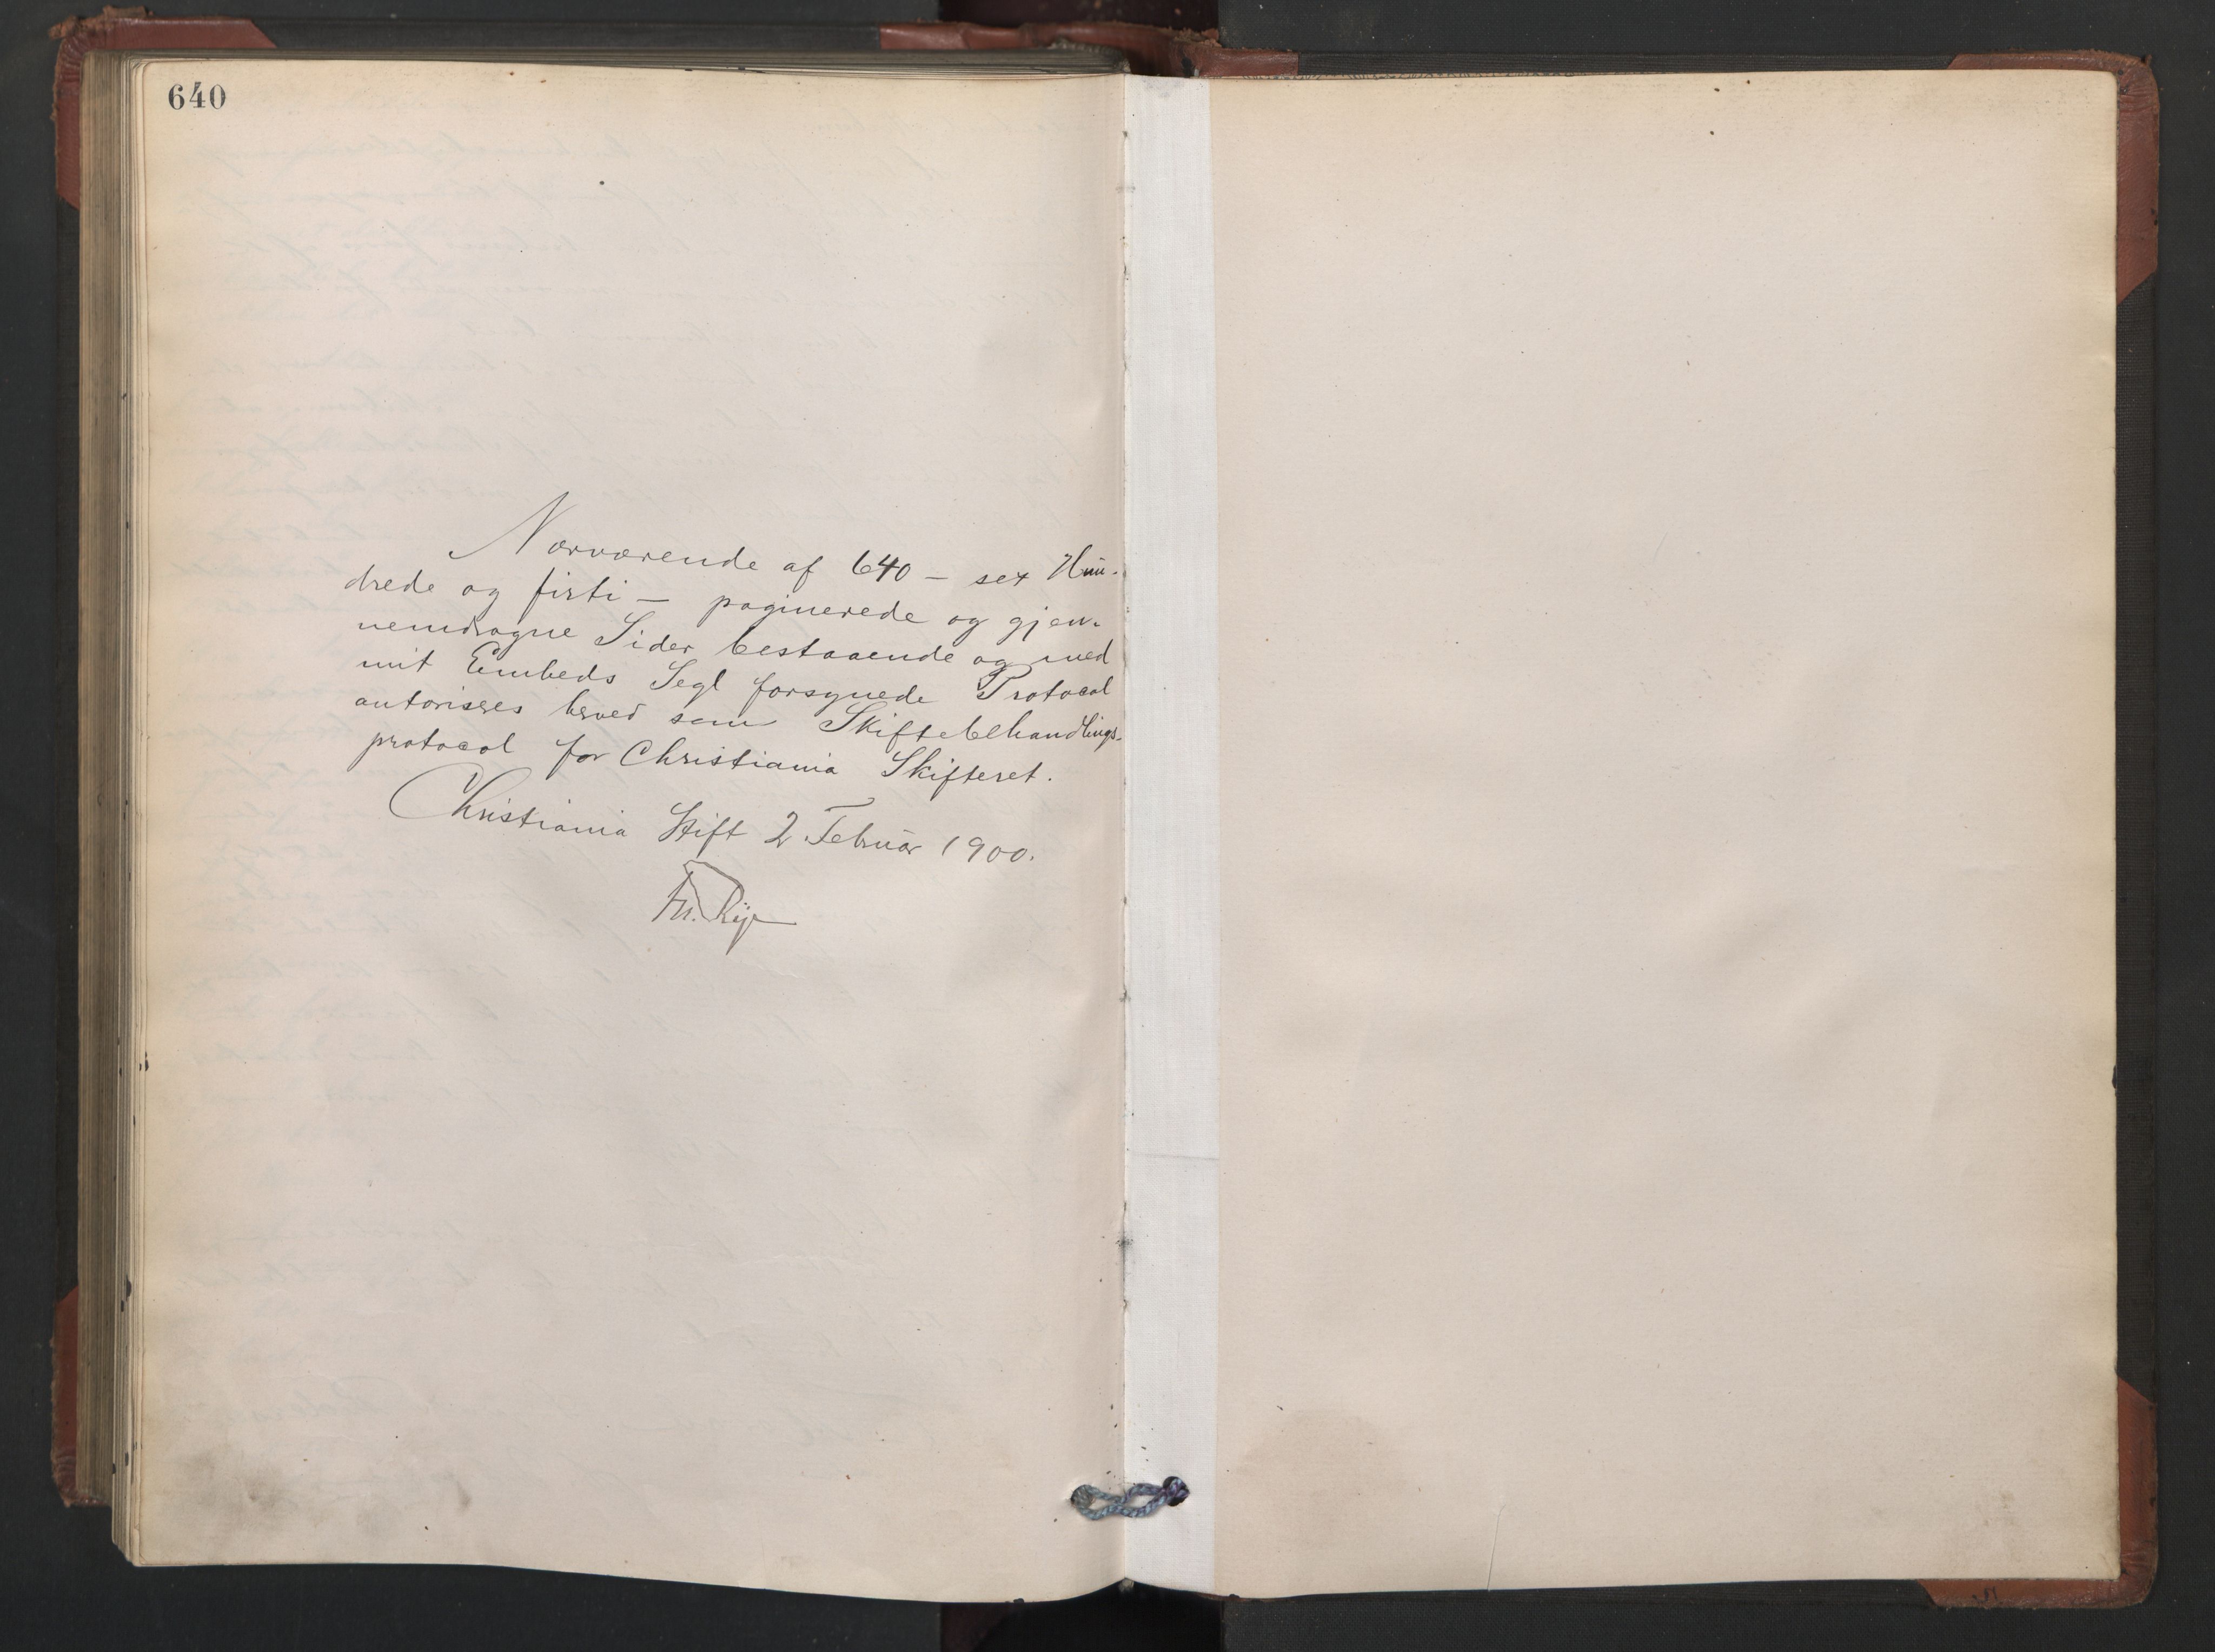 640
Nærværende af 640 – sex Hun-
drede og firti – paginerede og gjen-
nemdragne Sider bestaaende og med
mit Embeds Segl forsynede Protocol
autorisers herved som Skiftebehandlings-
protocol for Christiania Skifteret.
Christiania Stift 2 Februar 1900.